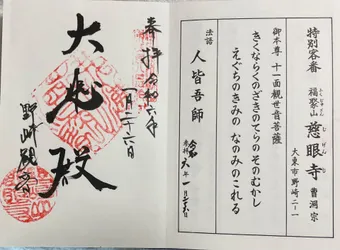 特別客番
福聚山 慈眼寺 曹洞宗
大東市野崎二ー一
御本尊 十一面観世音菩薩
きくならくのざきのてらのそのむかし
えぐちのきみの なのみのこれる
法語
人皆吾師
令和
六年一月二六
奉拝 令和六年
一月二十六日
大悲殿
野崎観音